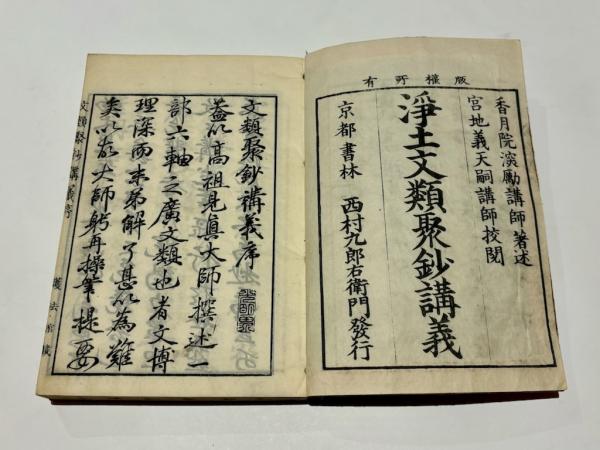 版權所有
香月院深勵講師著述
宮地義天嗣講師挍閲
淨土文類聚鈔講義
京都書林 西村九郎右衛門發行
文類聚鈔講義序
蓋以高祖見眞大師撰述一
部六軸之廣文類也者文博
理深而末弟解了甚以為難
矣以故大師躬再操筆提要
文類聚鈔講義序